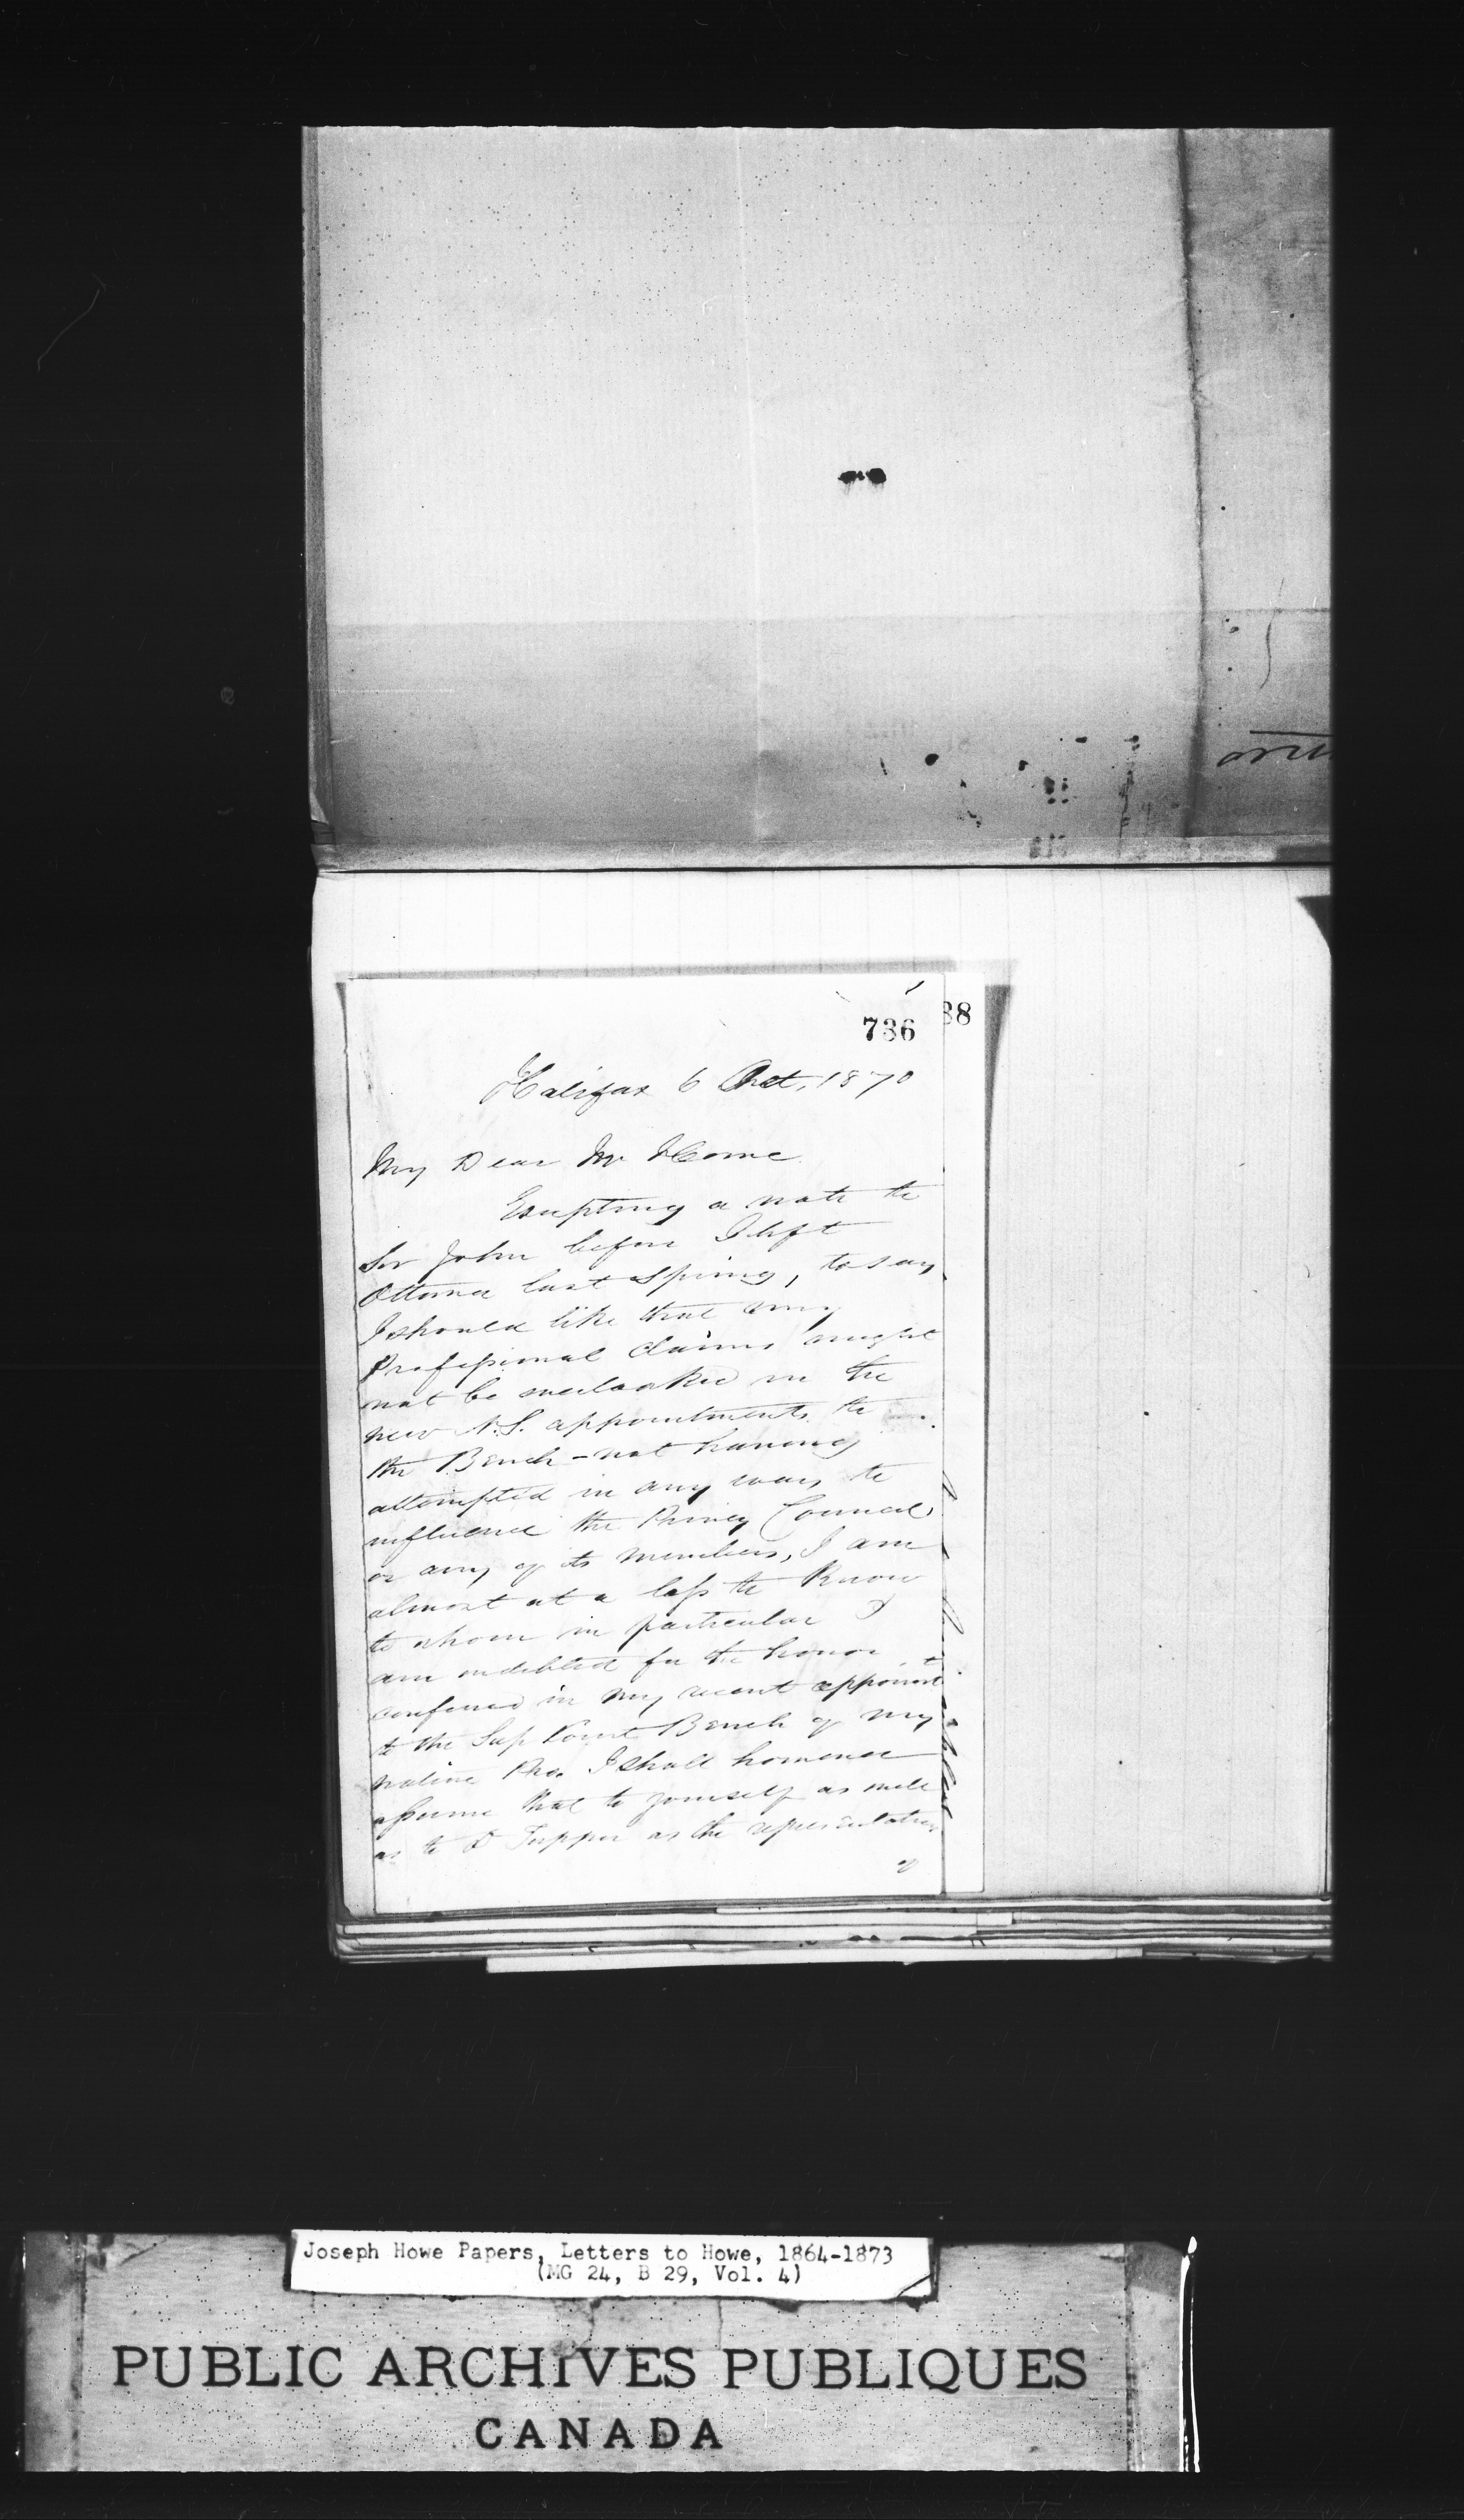 736
38
Halifax 6 Oct. 1870
My Dear Mr Howe
Excepting a note to
Sir John before I left
Ottawa last Spring, to say
I should like that my
Professional claims might
not be overlooked in the
new N.S. appointments to
the Bench - not having
attempted in any way to
influence the Privy Council
or any of its members, I am
almost at a loss to know
to whom in particular I
am indebted for the honor
conferred in my recent appointt
to the Sup Court Bench of my
native Pro. I shall however
assume that to yourself as well
as to Dr Tupper as the representatives
of
Joseph Howe Papers, Letters to Howe, 1864-1873
(MG 24, B 29, Vol. 4)
PUBLIC ARCHIVES PUBLIQUES
CANADA